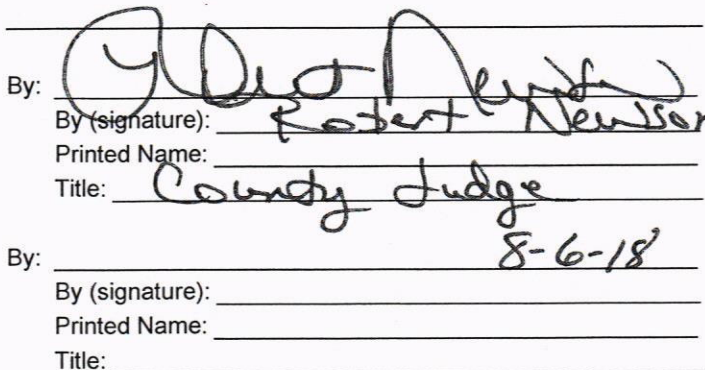 By:
By (signature): Robert Newsom
Printed Name:
Title: County Judge
By: 8-6-18
By (signature):
Printed Name:
Title: